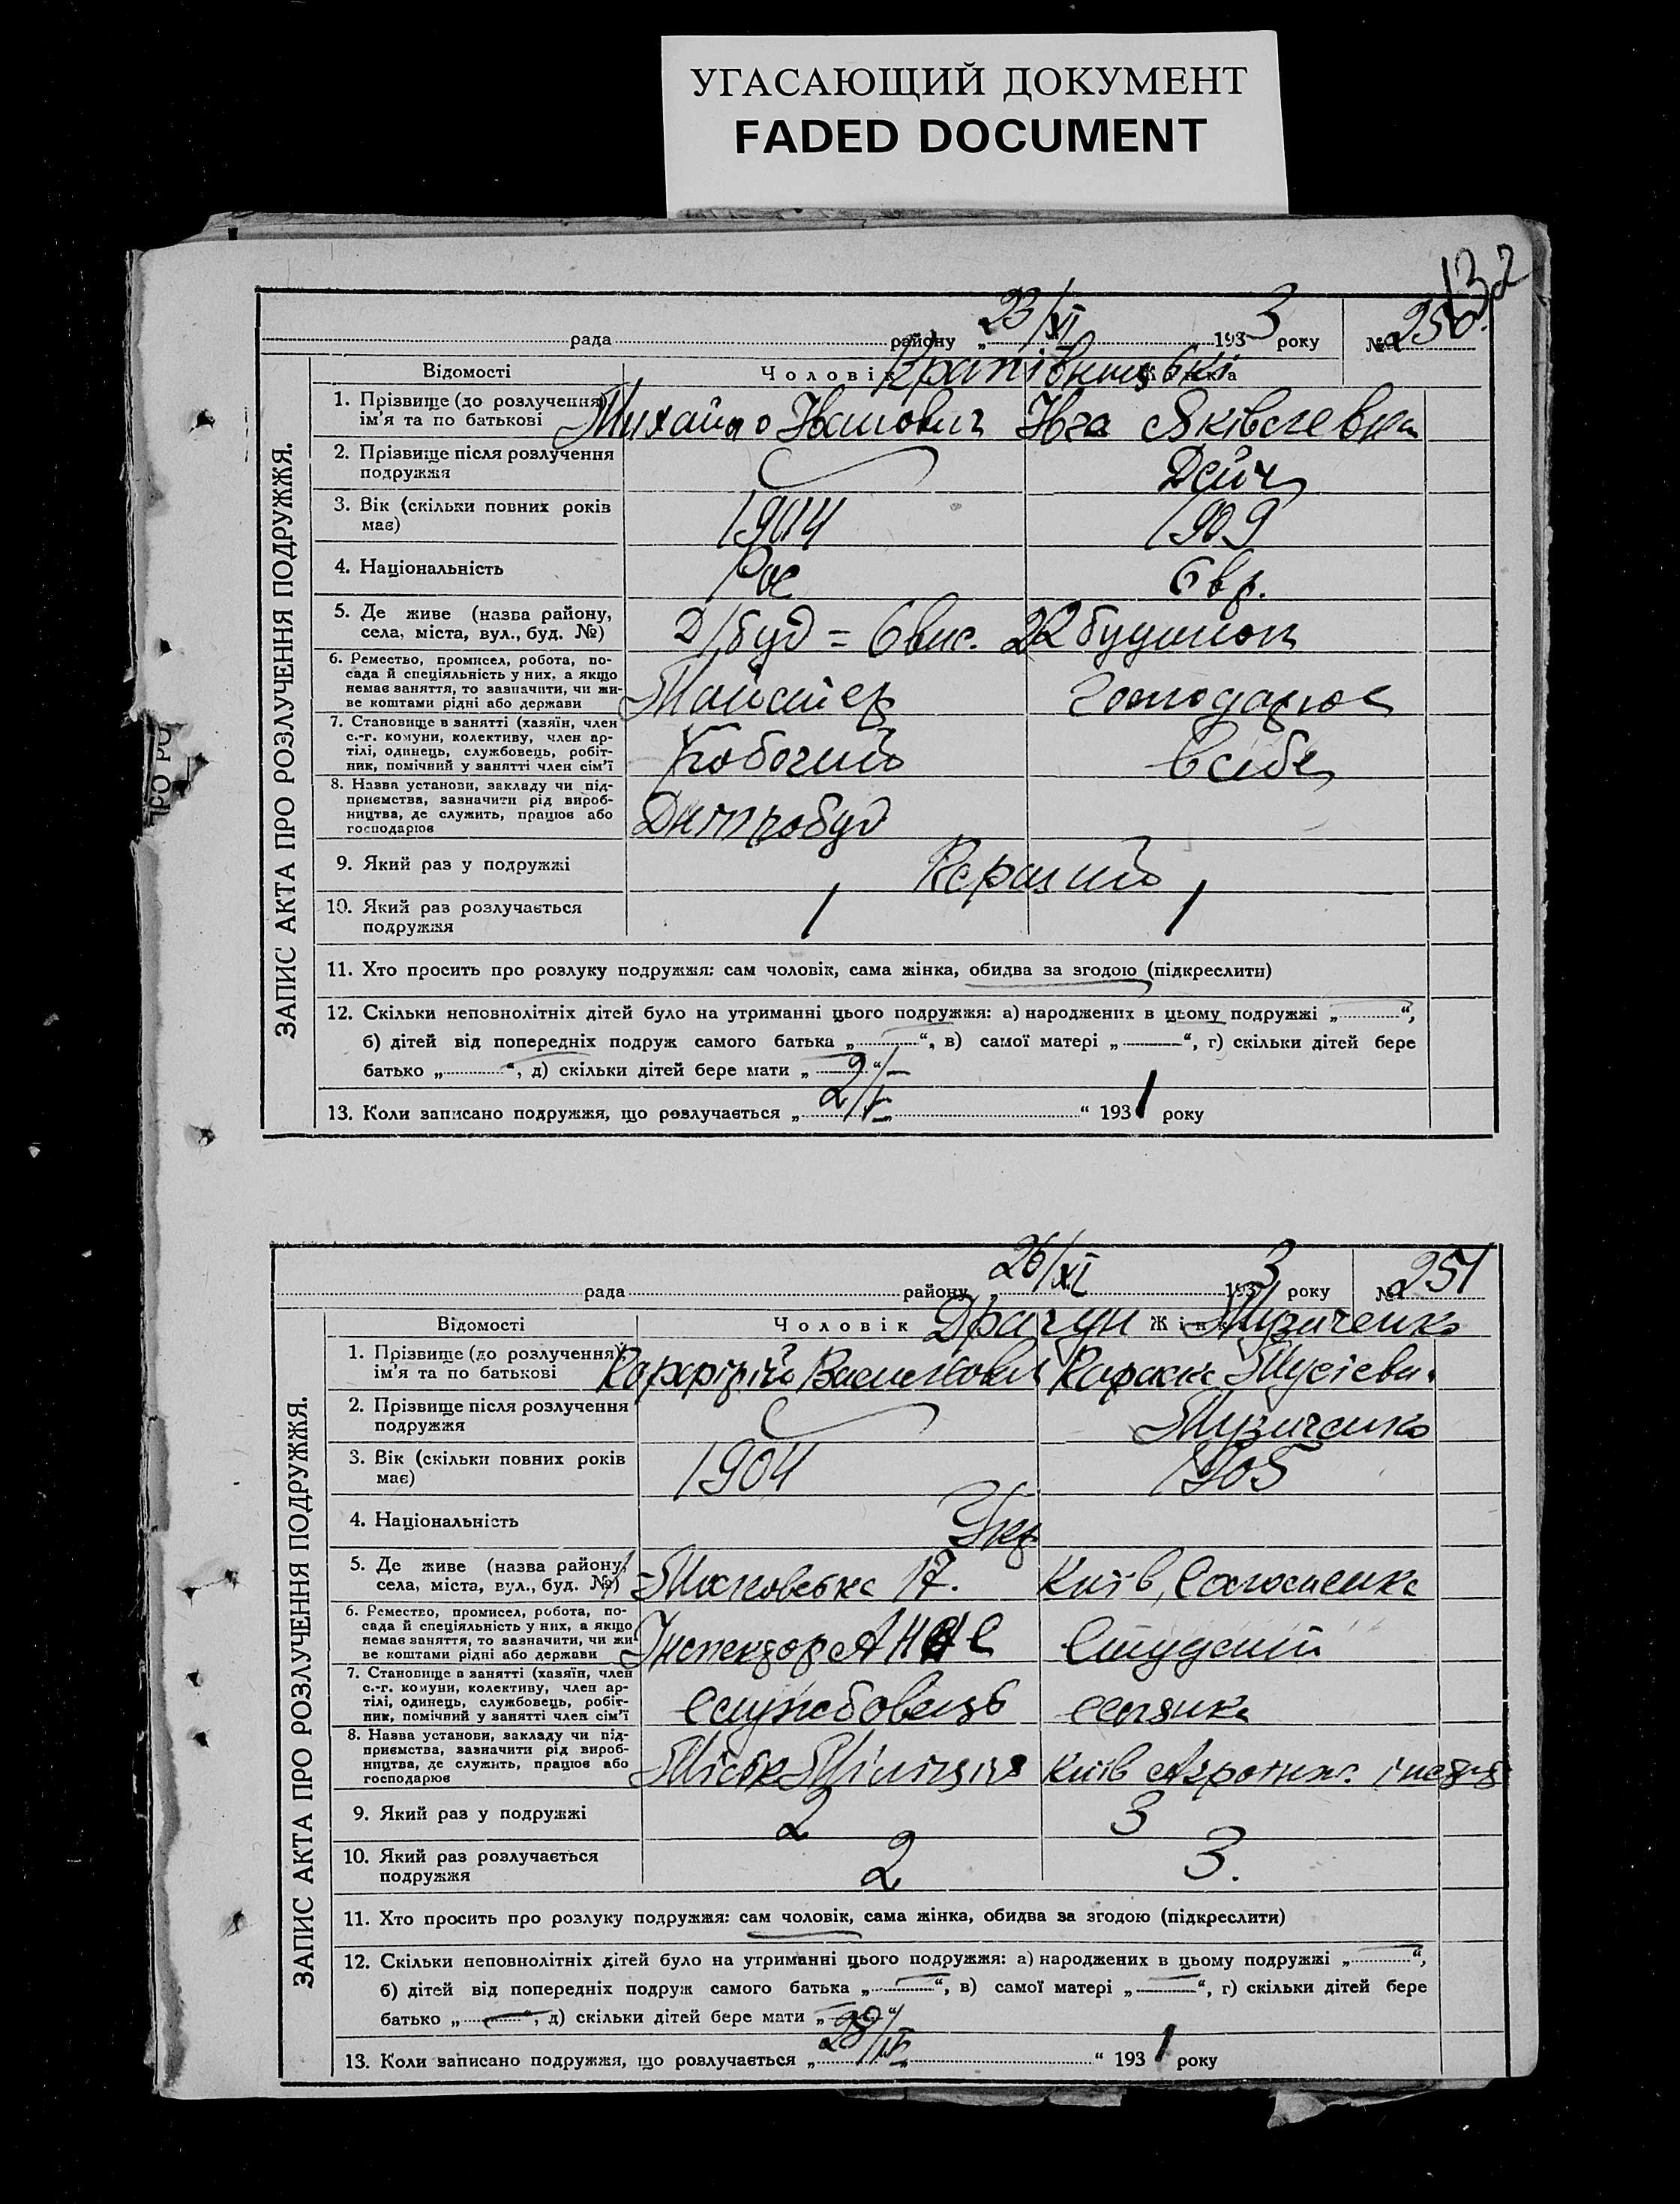 УГАСАЮЩИЙ ДОКУМЕНТ
FADED DOCUMENT
132
рада району „23/XI 1933 року № 250.
ЗАПИС АКТА ПРО РОЗЛУЧЕННЯ ПОДРУЖЖЯ.
Відомості Чоловік Жінка
1. Прізвище (до розлучення), ім'я та по батькові Михайло Іванович
2. Прізвище після розлучення подружжя Дейч
3. Вік (скільки повних років має) 1904 1909
4. Національність Рос Євр.
5. Де живе (назва району, села, міста, вул., буд. №) Д/буд = 6 вис. 22 будинок
6. Ремество, промисел, робота, по-
сада й спеціяльність у них, а якщо
немає заняття, то зазначити, чи жи-
ве коштами рідні або держави Майстер господарює
7. Становище в занятті (хазяїн, член
с.-г. комуни, колективу, член ар-
тілі, одинець, службовець, робіт-
ник, помічний у занятті член сім'ї Робочий в себе
8. Назва установи, закладу чи під-
приємства, зазначити рід вироб-
ництва, де служить, працює або
господарює Дніпробуд
9. Який раз у подружжі Перший
10. Який раз розлучається подружжя 1 1
11. Хто просить про розлуку подружжя: сам чоловік, сама жінка, обидва за згодою (підкреслити)
12. Скільки неповнолітніх дітей було на утриманні цього подружжя: а) народжених в цьому подружжі „ “,
б) дітей від попередніх подруж самого батька „ “, в) самої матері „ “, г) скільки дітей бере
батько „ “, д) скільки дітей бере мати „ “
13. Коли записано подружжя, що розлучається „ 2/V “ 1931 року
рада району „26/XI 1933 року № 251
ЗАПИС АКТА ПРО РОЗЛУЧЕННЯ ПОДРУЖЖЯ.
Відомості Чоловік Драгун Жінка Музиченко
1. Прізвище (до розлучення), ім'я та по батькові
2. Прізвище після розлучення подружжя Музиченко
3. Вік (скільки повних років має) 1904 1905
4. Національність Укр
5. Де живе (назва району, села, міста, вул., буд. №) Московська 17. Київ,
6. Ремество, промисел, робота, по-
сада й спеціяльність у них, а якщо
немає заняття, то зазначити, чи жи-
ве коштами рідні або держави Інспектор Студент
7. Становище в занятті (хазяїн, член
с.-г. комуни, колективу, член ар-
тілі, одинець, службовець, робіт-
ник, помічний у занятті член сім'ї Службовець селянка
8. Назва установи, закладу чи під-
приємства, зазначити рід вироб-
ництва, де служить, працює або
господарює Міськ Міліція Київ
9. Який раз у подружжі 2 3
10. Який раз розлучається подружжя 2 3.
11. Хто просить про розлуку подружжя: сам чоловік, сама жінка, обидва за згодою (підкреслити)
12. Скільки неповнолітніх дітей було на утриманні цього подружжя: а) народжених в цьому подружжі „ “,
б) дітей від попередніх подруж самого батька „ “, в) самої матері „ “, г) скільки дітей бере
батько „ “, д) скільки дітей бере мати „ “
13. Коли записано подружжя, що розлучається „ 28/IV “ 1931 року